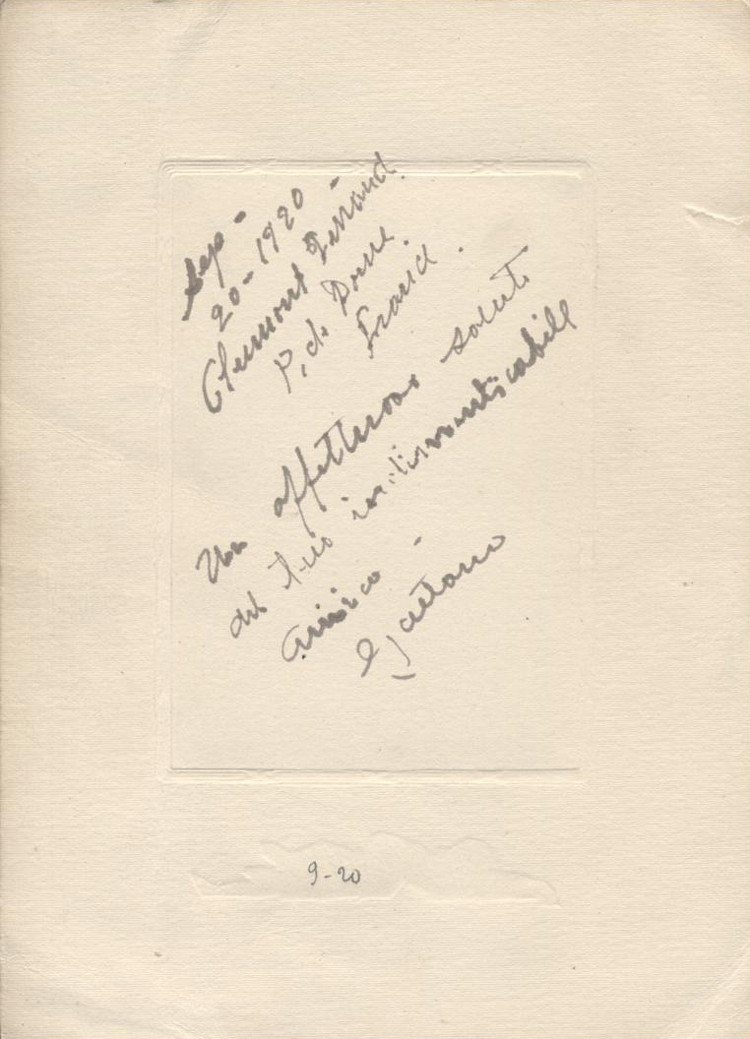 Sep -
20 - 1920 -
Clermont Ferrand.
P. de Dome
Francia.
Un affettuoso saluto
del tuo indimenticabile
amico -
Gaetano
9-20